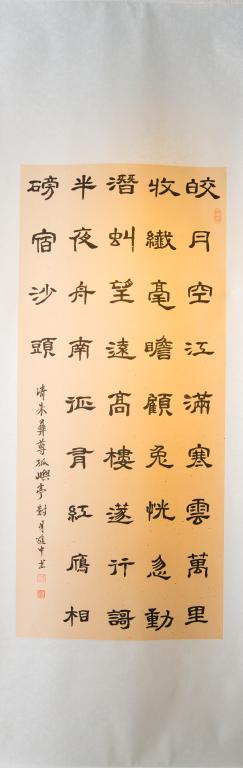 皎月空江滿寒雲萬里
收纖毫瞻顧兔恍忽動
潛虯望遠高樓遂行謌
半夜舟南征有紅鴈相
磅宿沙頭
清朱彝尊孤嶼亭對月